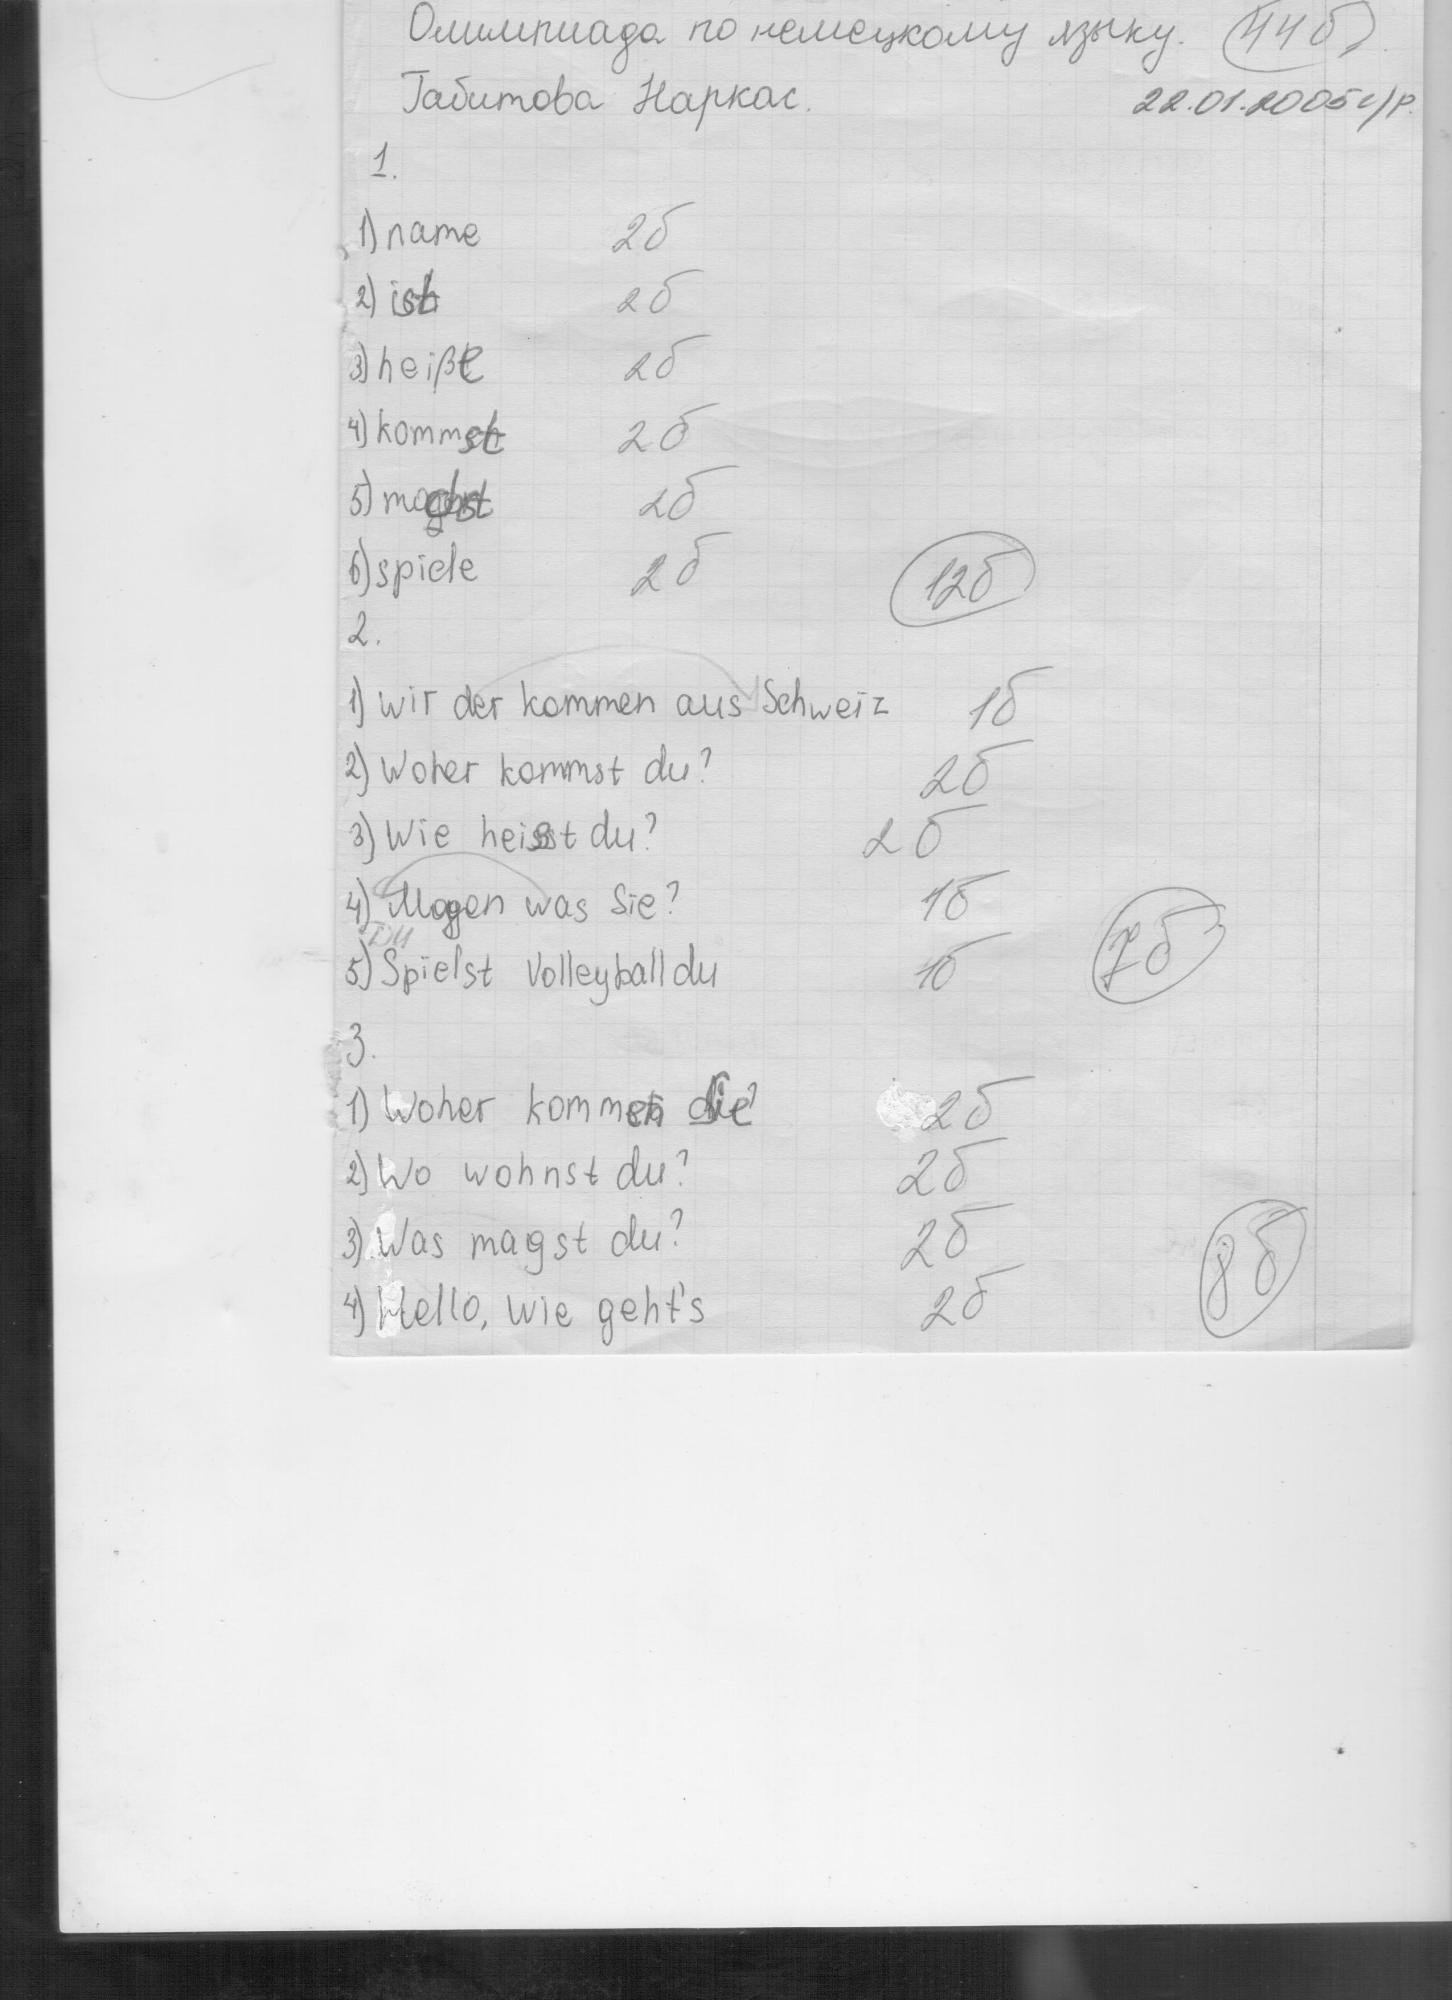 Олимпиада по немецкому языку. 44б
Габитова Наркас. 22.01.2005 г/р.
1.
1) name 2б
2) ist 2б
3) heiße 2б
4) kommst 2б
5) magst 2б
6) spiele 2б 12б
2.
1) Wir der kommen aus Schweiz 1б
2) Woher kommst du? 2б
3) Wie heisst du? 2б
4) Mogen was Sie? 1б
Du
5) Spielst Volleyball du 1б 7б
3.
1) Woher kommen Sie? 2б
2) Wo wohnst du? 2б
3) Was magst du? 2б
4) Hello, wie geht's 2б 8б